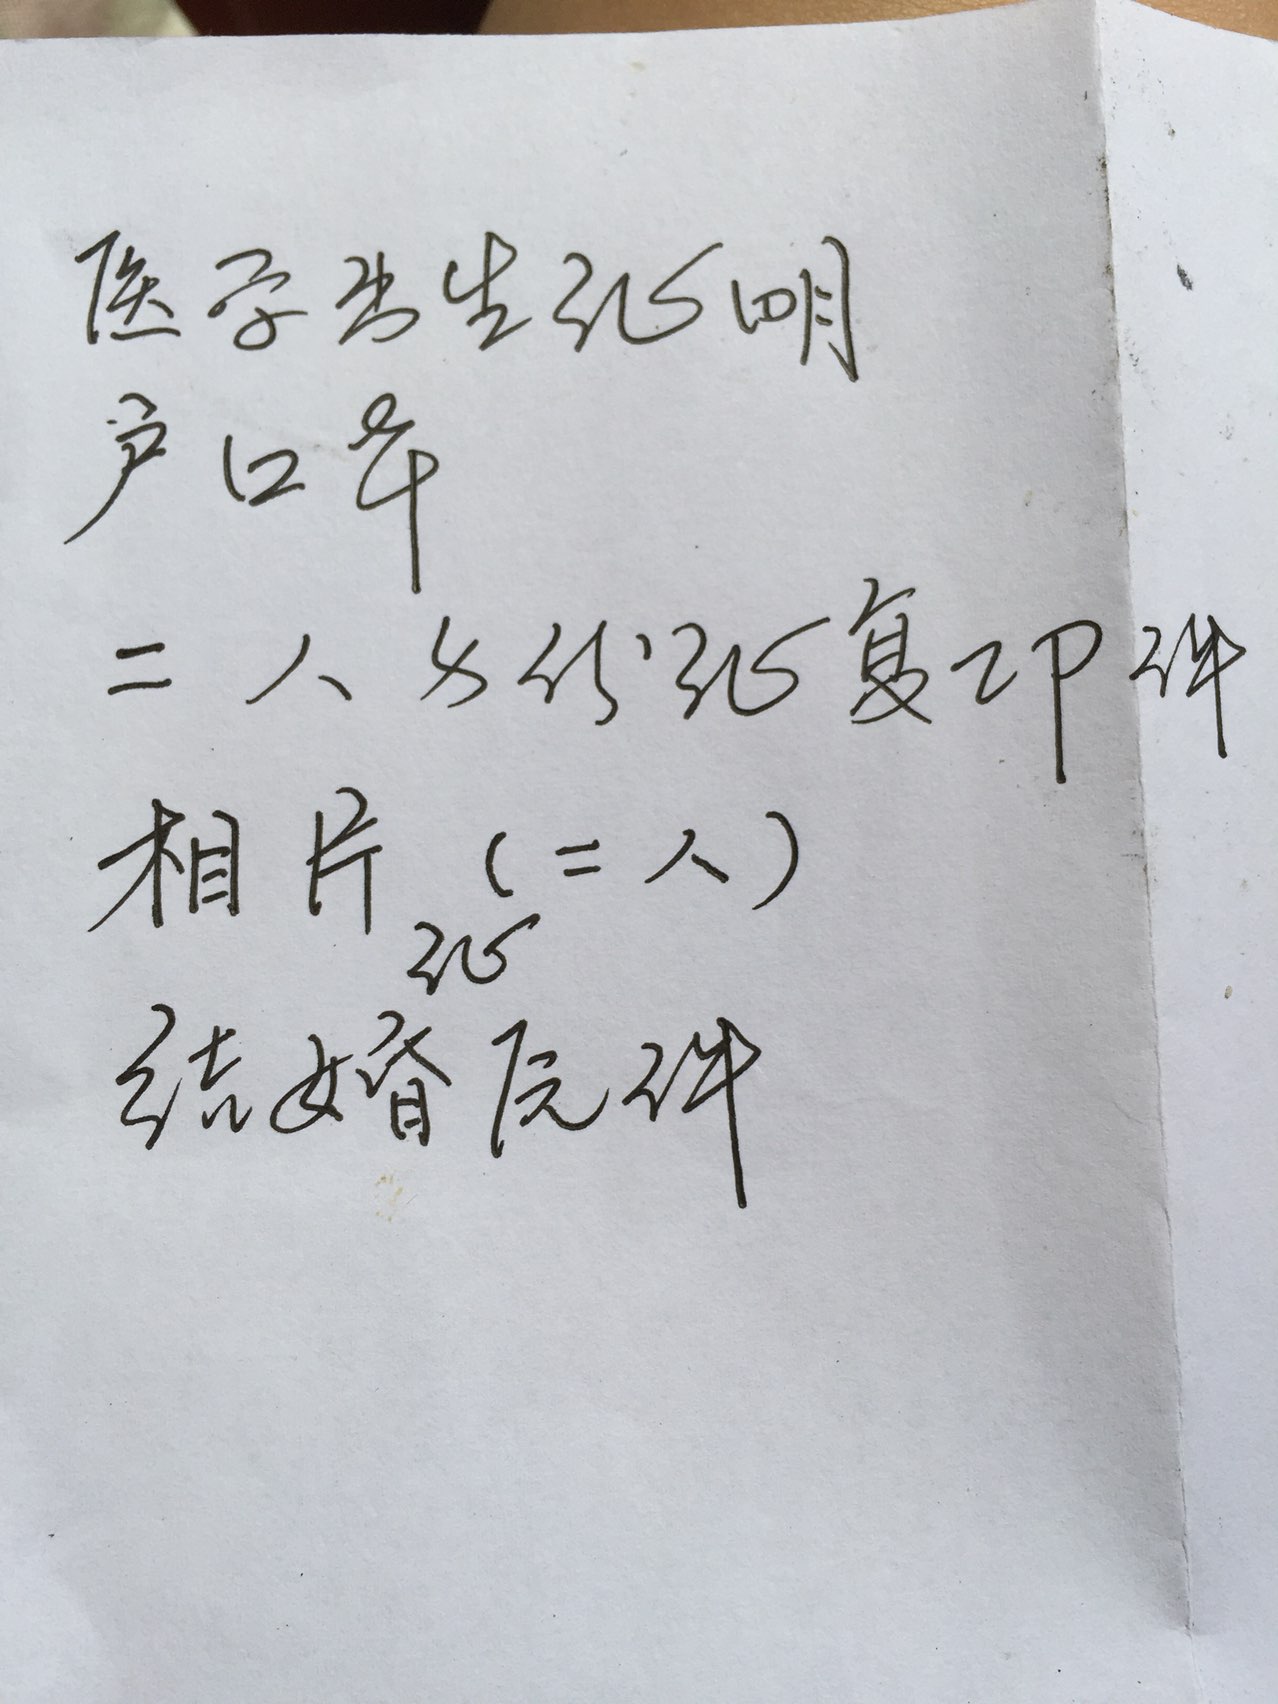 医学出生证明
户口本
二人身份证复印件
相片(二人)
证
结婚原件